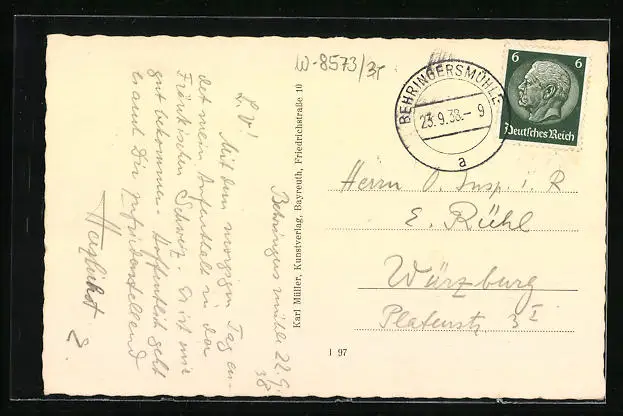 W-8573/3
BEHRINGERSMÜHLE
23.9.38.-9
a
6 6
Deutsches Reich
Behringersmühle 22.9.
38
L. V!
Mit dem morgigen Tag en-
det mein Aufenthalt in der
Fränkischen Schweiz. Es ist mir
gut bekommen. Hoffentlich geht
es auch Dir zufriedenstellend
Herzlichst
E.
Karl Müller, Kunstverlag, Bayreuth, Friedrichstraße 10
I 97
Herrn O. Insp. i. R
E. Rühl
Würzburg
Platenstr 3 I